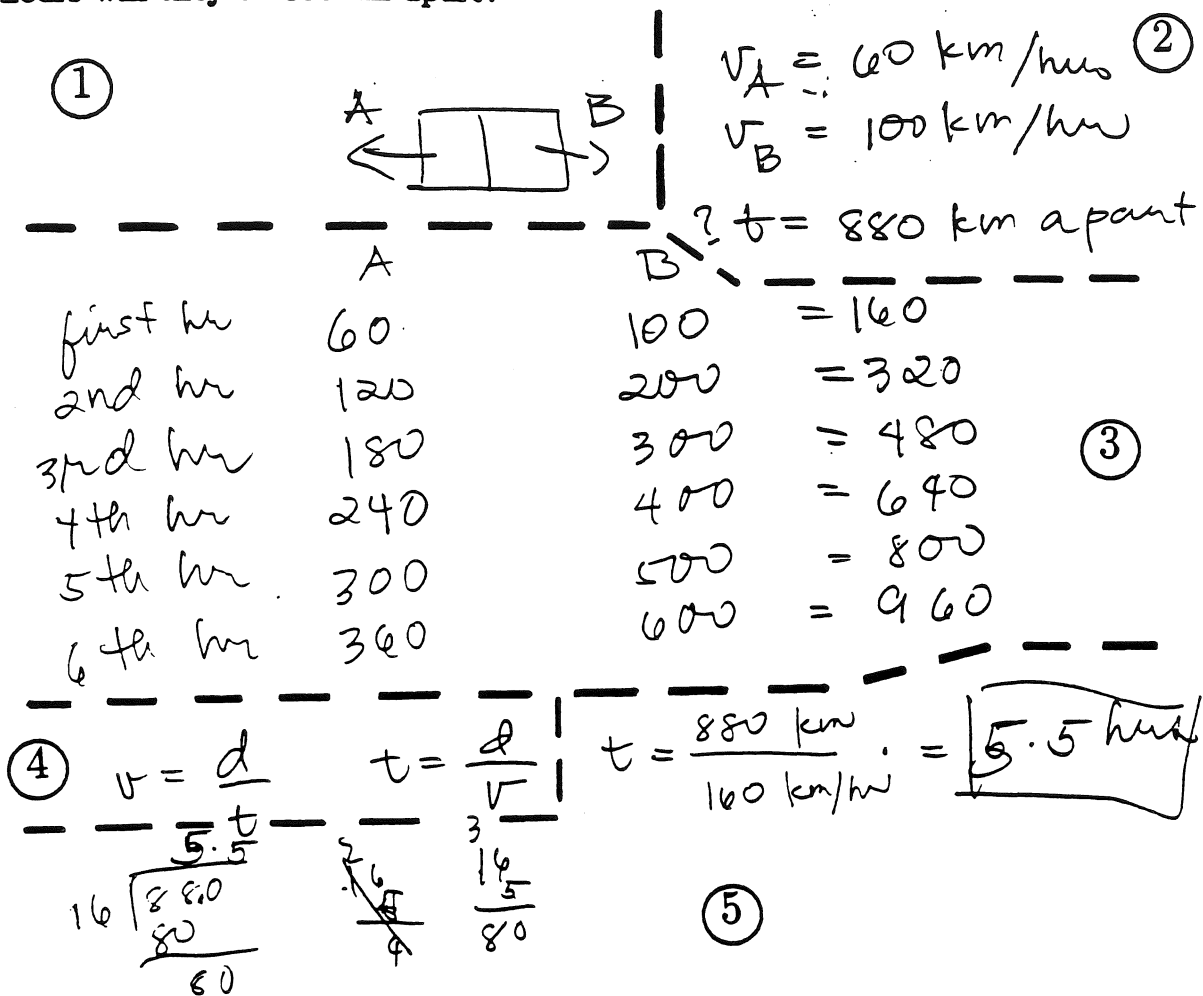 ①
A B
②
v_A = 60 km/hr
v_B = 100 km/hr
? t = 880 km apart
A B
first hr 60 100 = 160
2nd hr 120 200 = 320
3rd hr 180 300 = 480
③
4th hr 240 400 = 640
5th hr 300 500 = 800
6th hr 360 600 = 960
④
v = d/t t = d/v
t = 880 km / 160 km/hr = 5.5 hrs
5.5
16 88.0
80
80
3
16
5
80
⑤